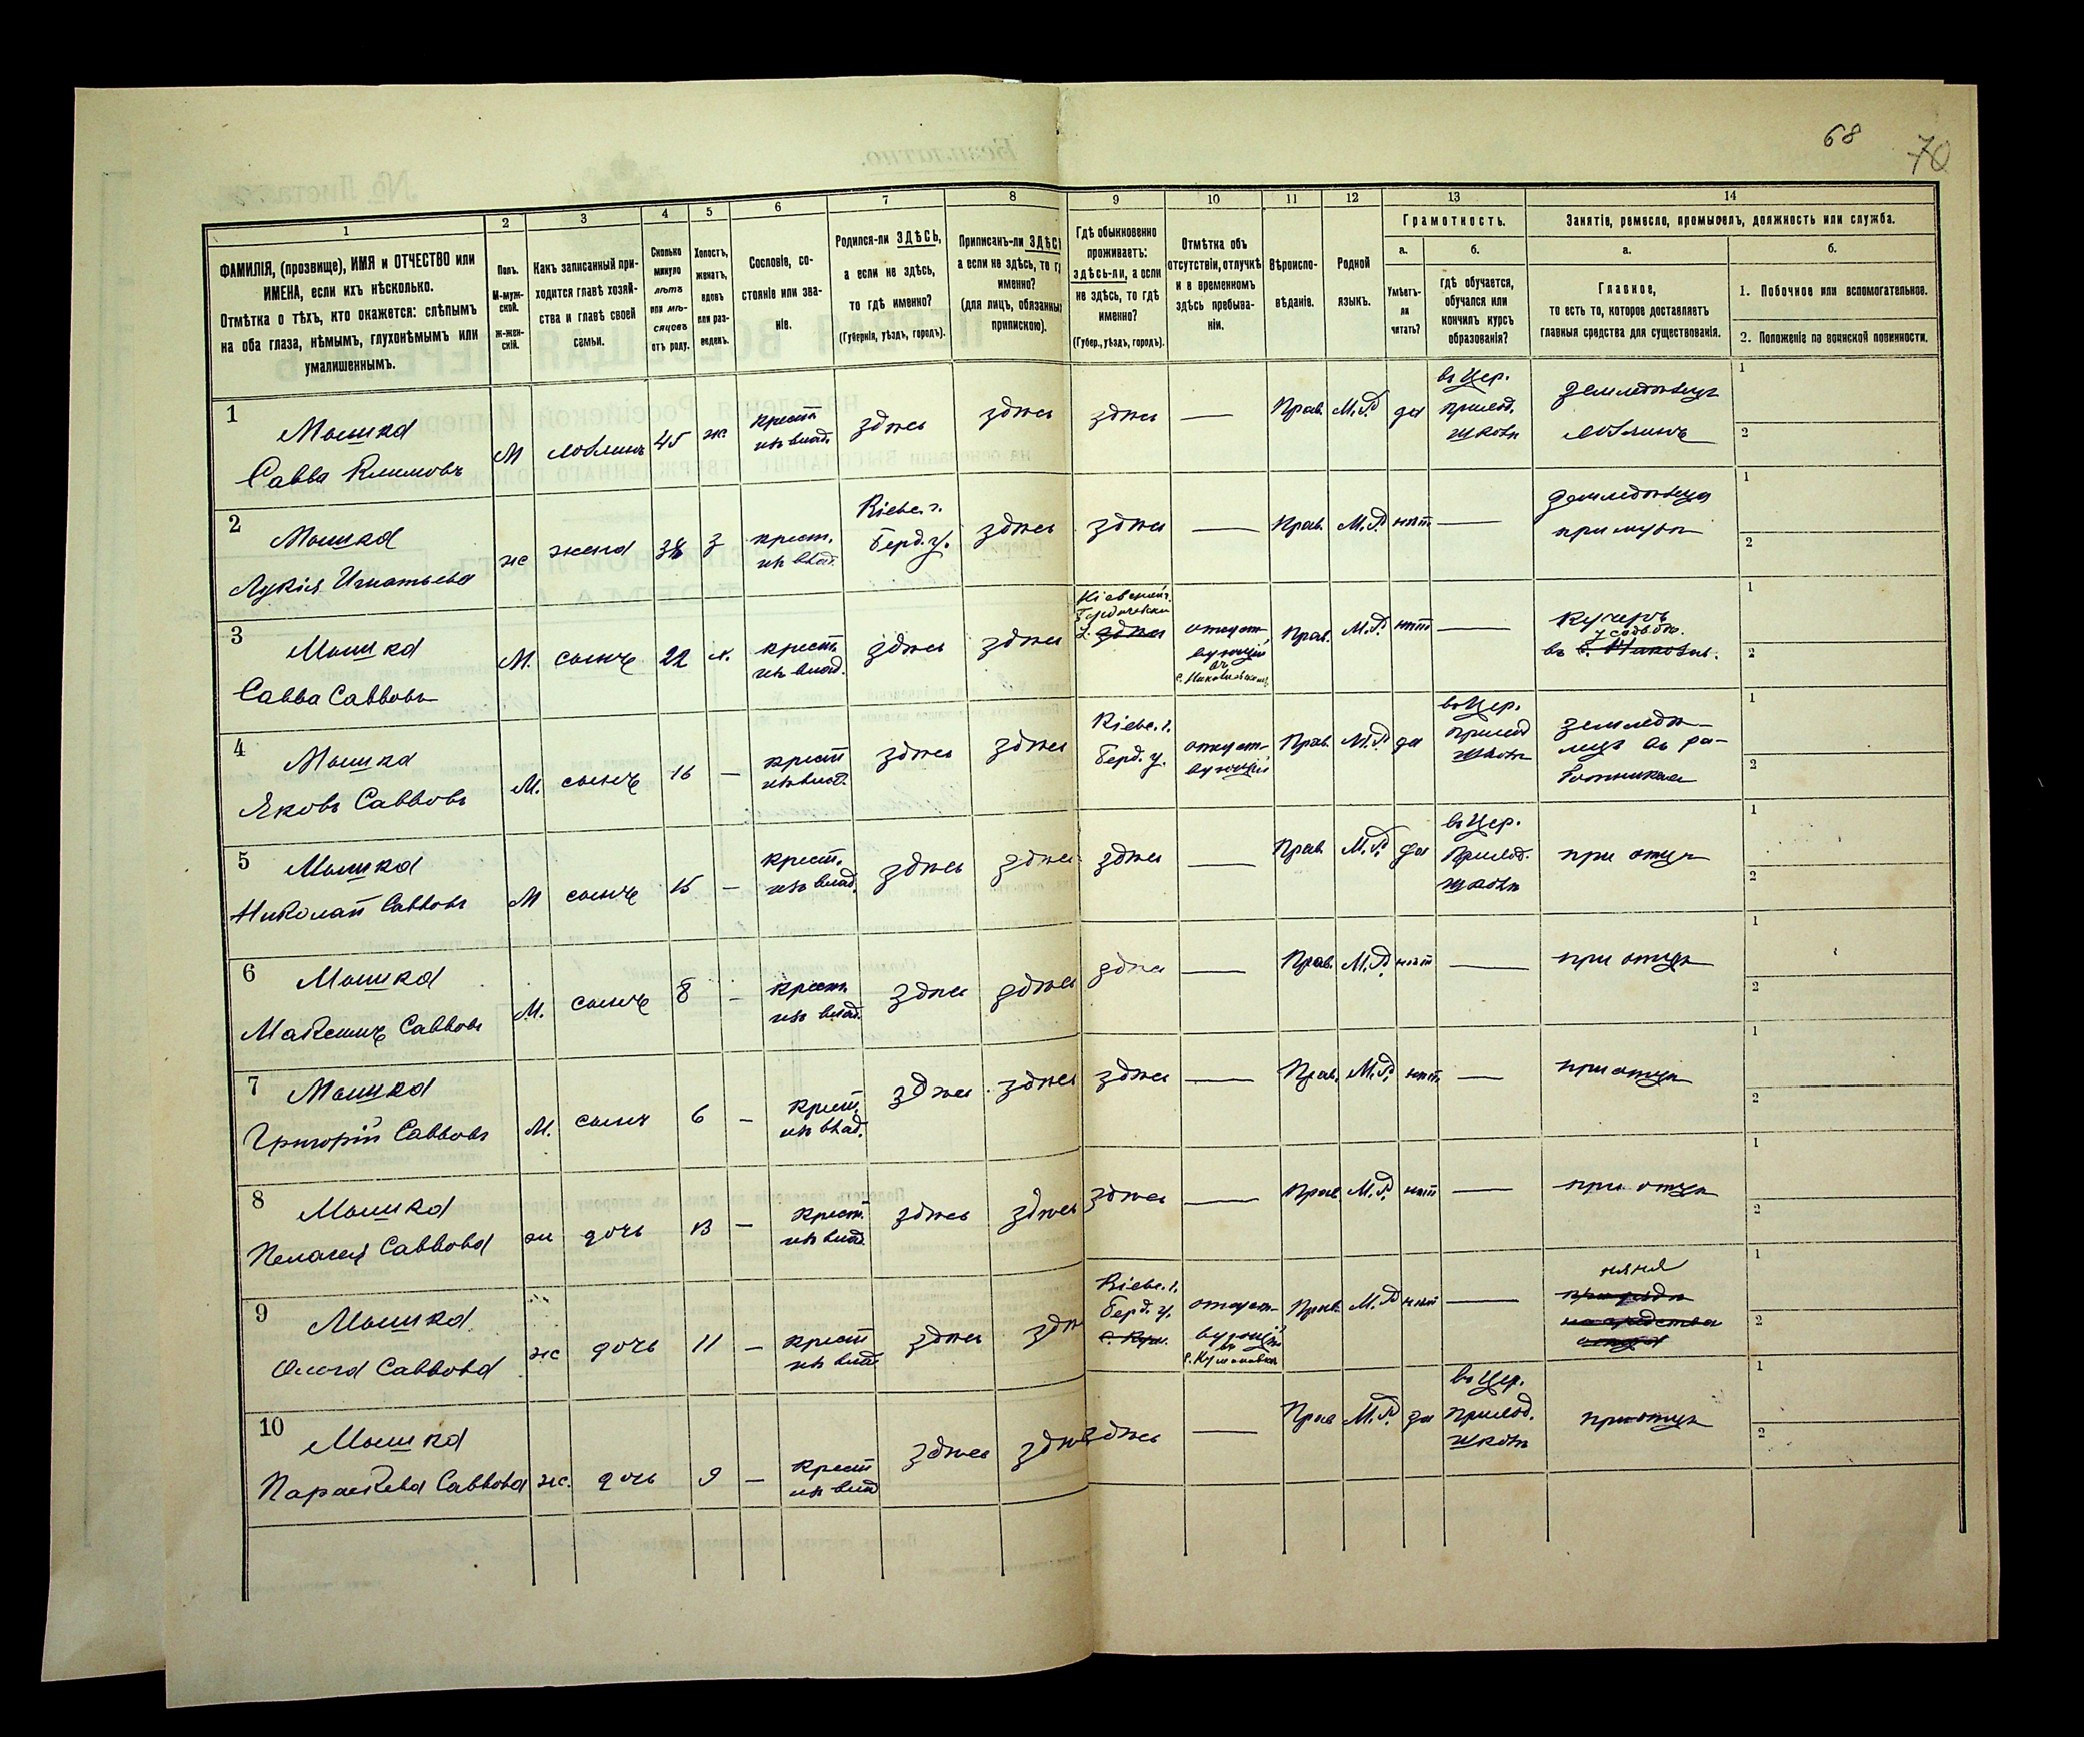 68
70
1
2
3
4
5
6
7
8
9
10
11
12
13
14
ФАМИЛІЯ, (прозвище), ИМЯ и ОТЧЕСТВО или
ИМЕНА, если ихъ нѣсколько.
Отмѣтка о тѣхъ, кто окажется: слѣпымъ
на оба глаза, нѣмымъ, глухонѣмымъ или
умалишеннымъ.
Полъ.
М-муж-
ской.
ж-жен-
скій.
Какъ записанный при-
ходится главѣ хозяй-
ства и главѣ своей
семьи.
Сколько
минуло
лѣтъ
или мѣ-
сяцовъ
отъ роду.
Холостъ,
женатъ,
вдовъ
или раз-
веденъ.
Сословіе, со-
стояніе или зва-
ніе.
Родился-ли ЗДѢСЬ,
а если не здѣсь,
то гдѣ именно?
(Губернія, уѣздъ, городъ).
Приписанъ-ли ЗДѢСЬ
а если не здѣсь, то гд
именно?
(для лицъ, обязанныхъ
припискою).
Гдѣ обыкновенно
проживаетъ:
здѣсь-ли, а если
не здѣсь, то гдѣ
именно?
(Губер., уѣздъ, городъ).
Отмѣтка объ
отсутствіи, отлучкѣ
и о временномъ
здѣсь пребыва-
ніи.
Вѣроиспо-
вѣданіе.
Родной
языкъ.
Грамотность.
а.
б.
Умѣетъ-
ли
читать?
гдѣ обучается,
обучался или
кончилъ курсъ
образованія?
Занятіе, ремесло, промыселъ, должность или служба.
а.
б.
Главное,
то есть то, которое доставляетъ
главныя средства для существованія.
1. Побочное или вспомогательное.
2. Положеніе по воинской повинности.
1
Мышка
Савва Климовъ
М
хозяинъ
45
ж
крест.
изъ влад.
здѣсь
здѣсь
здѣсь
—
Прав.
М.Р.
да
въ Цер.
приход.
школѣ
земледѣлецъ
хозяинъ
1
2
2
Мышка
Лукія Игнатьева
ж
жена
38
З
крест.
изъ влад.
Кіевс. г.
Берд. у.
здѣсь
здѣсь
—
Прав.
М.Р.
нѣт
—
земледѣлица
при мужѣ
1
2
3
Мышка
Савва Саввовъ
М.
сынъ
22
х.
крест.
изъ влад.
здѣсь
здѣсь
Кіевской г.
Бердичевск.
у. здѣсь
отсутст-
вующій
въ
Прав.
М.Р.
нѣт
—
Кучеръ
усадьбѣ.
въ
1
2
4
Мышка
Яковъ Саввовъ
М.
сынъ
16
—
крест
изъ влад.
здѣсь
здѣсь
Кіевс. г.
Берд. у.
отсутст-
вующій
Прав.
М.Р.
да
въ Цер.
Приход
школѣ
земледѣ-
лецъ въ ра-
ботникахъ
1
2
5
Мышка
Николай Саввовъ
М
сынъ
15
—
крест.
изъ влад.
здѣсь
здѣсь
здѣсь
—
Прав
М.Р.
да
въ Цер.
Приход.
школѣ
при отцѣ
1
2
6
Мышка
Максимъ Саввовъ
М.
сынъ
8
—
крест
изъ влад.
здѣсь
здѣсь
здѣсь
—
Прав.
М.Р.
нѣт
—
при отцѣ
1
2
7
Мышка
Григорій Саввовъ
М.
сынъ
6
—
крест
изъ влад.
здѣсь
здѣсь
здѣсь
—
Прав.
М.Р.
нѣт
—
при отцѣ
1
2
8
Мышка
Пелагея Саввова
ж
дочь
13
—
крест.
изъ влад.
здѣсь
здѣсь
здѣсь
—
Прав
М.Р.
нѣт
—
при отцѣ
1
2
9
Мышка
Ольга Саввова
ж
дочь
11
—
крест
изъ влад
здѣсь
здѣ
Кіевс. г.
Берд. у.
отсутст-
вующій
въ
с. Кумановкѣ
Прав.
М.Р
нѣт
—
няня
на средства
отца
1
2
10
Мышка
Параскева Саввова
ж.
дочь
9
—
крест
изъ влад
здѣсь
здѣ
здѣсь
—
Прав
М.Р.
да
въ Цер.
Приход.
школѣ
при отцѣ
1
2